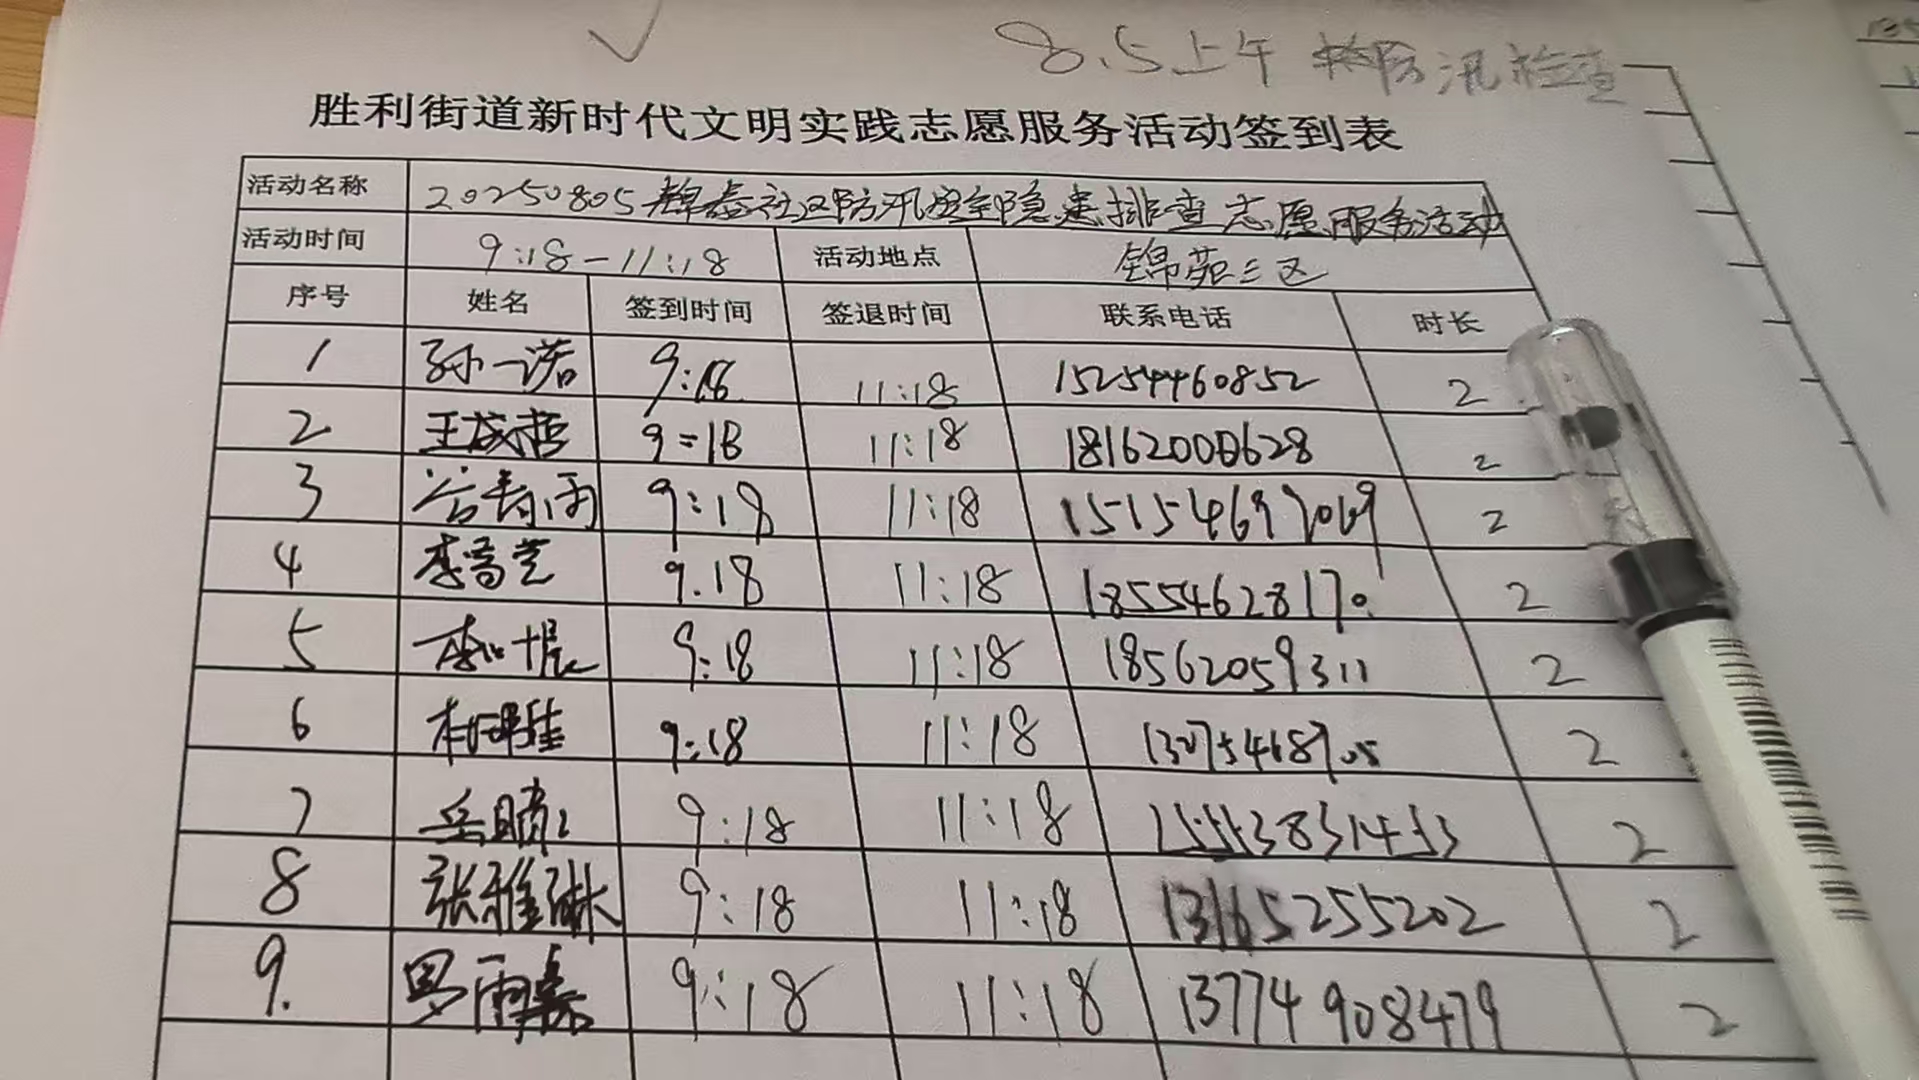 8.5上午 防汛检查
胜利街道新时代文明实践志愿服务活动签到表
活动名称 20250805锦泰社区防汛安全隐患排查志愿服务活动
活动时间 9:18-11:18 活动地点 锦苑三区
序号 姓名 签到时间 签退时间 联系电话 时长
1 孙一诺 9:18 11:18 15254460852 2
2 王成哲 9=18 11:18 18162000628 2
3 9:18 11:18 2
4 9.18 11:18 18554628170 2
5 9:18 11:18 18562059311 2
6 9:18 11:18 2
7 9:18 11:18 2
8 张雅琳 9:18 11:18 13165255202 2
9. 罗雨嘉 9:18 11:18 13774908479 2